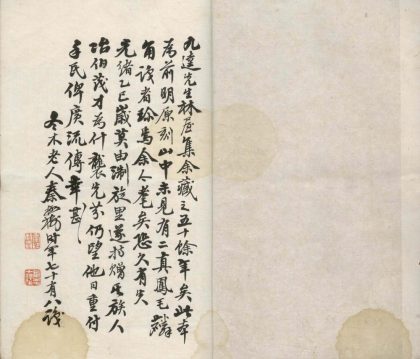 九達先生林屋集余藏之五十餘年矣此本
為前明原刻山中未見有二真鳳毛麟
角識者珍焉余今耄矣恐久有失
光緒乙巳歲莫由淛旋里遂持贈氏族人
治伯茂才為什襲先芬仍望他日重付
手民俾廣流傳幸甚
冬木老人秦 時年七十有八識